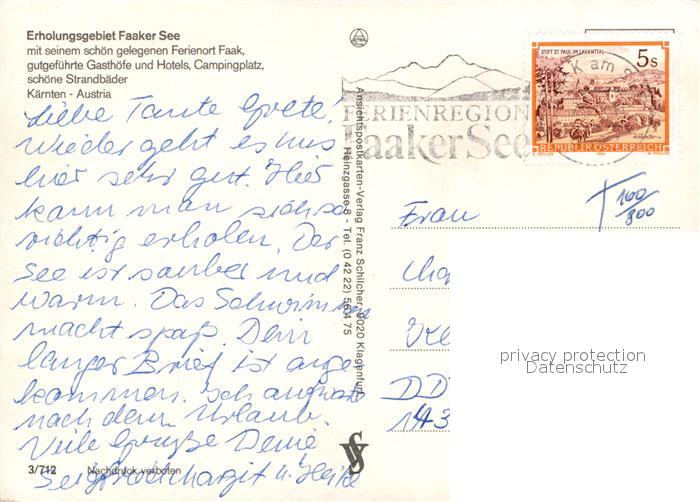 Erholungsgebiet Faaker See
mit seinem schön gelegenen Ferienort Faak,
gutgeführte Gasthöfe und Hotels, Campingplatz,
schöne Strandbäder
Kärnten - Austria
Liebe Tante Grete!
Wieder geht es uns
hier sehr gut. Hier
kann man sich so
richtig erholen. Der
See ist sauber und
warm. Das Schwimmen
macht spaß. Dein
langer Brief ist ange
kommen. Ich antworte
nach dem Urlaub.
Viele Grüße Deine
u. Heike
3/712
Nachdruck verboten
Ansichtspostkarten-Verlag Franz Schilcher, 9020 Klagenfurt
Heinzgasse 8 - Tel. (0 42 22) 56 4 75
FERIENREGION
Faaker See
STIFT ST. PAUL IM LAVANTTAL
5s
REPUBLIK ÖSTERREICH
T 100/800
Frau
DD
privacy protection
Datenschutz